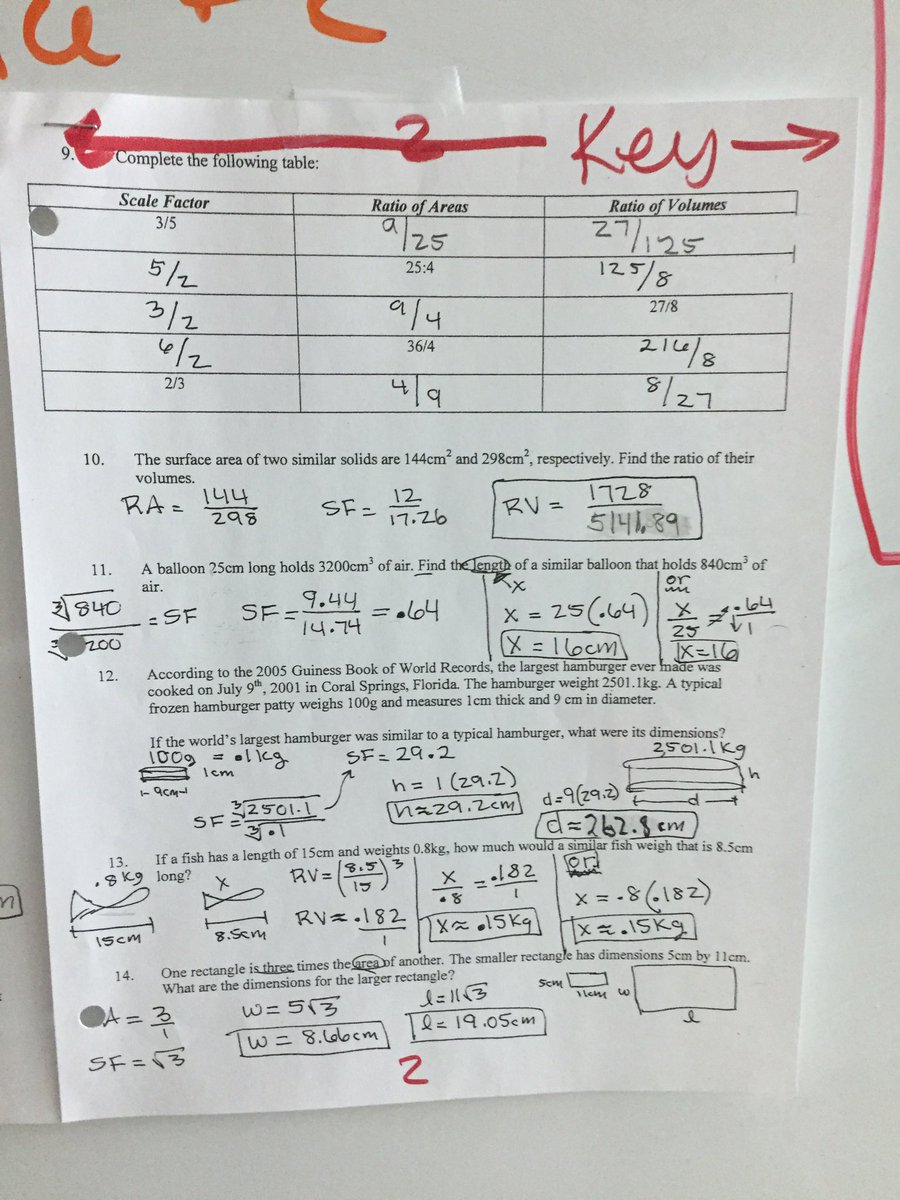 2 Key →
9. Complete the following table:
Scale Factor Ratio of Areas Ratio of Volumes
3/5 9/25 27/125
5/2 25:4 125/8
3/2 9/4 27/8
6/2 36/4 216/8
2/3 4/9 8/27
10. The surface area of two similar solids are 144cm² and 298cm², respectively. Find the ratio of their
volumes.
RA = 144/298 SF = 12/17.26 RV = 1728/5141.89
11. A balloon 25cm long holds 3200cm³ of air. Find the length of a similar balloon that holds 840cm³ of
air.
∛840 / ∛ 200 = SF SF = 9.44/14.74 = .64 x x = 25(.64) or x/25 = .64/1
x = 16cm x=16
12. According to the 2005 Guiness Book of World Records, the largest hamburger ever made was
cooked on July 9th, 2001 in Coral Springs, Florida. The hamburger weight 2501.1kg. A typical
frozen hamburger patty weighs 100g and measures 1cm thick and 9 cm in diameter.
If the world's largest hamburger was similar to a typical hamburger, what were its dimensions?
100g = .1kg SF = 29.2 2501.1kg
1cm h = 1(29.2) h
9cm d=9(29.2) d
SF = ∛2501.1 / ∛.1 h≈29.2cm d≈262.8cm
13. If a fish has a length of 15cm and weights 0.8kg, how much would a similar fish weigh that is 8.5cm
long?
.8kg x RV = (8.5/15)³ x/.8 = .182/1 or x = .8(.182)
15cm 8.5cm RV≈ .182/1 x≈ .15kg x≈.15kg
14. One rectangle is three times the area of another. The smaller rectangle has dimensions 5cm by 11cm.
What are the dimensions for the larger rectangle?
A = 3/1 w = 5√3 l = 11√3 5cm 11cm w l
SF = √3 w = 8.66cm l = 19.05cm
2